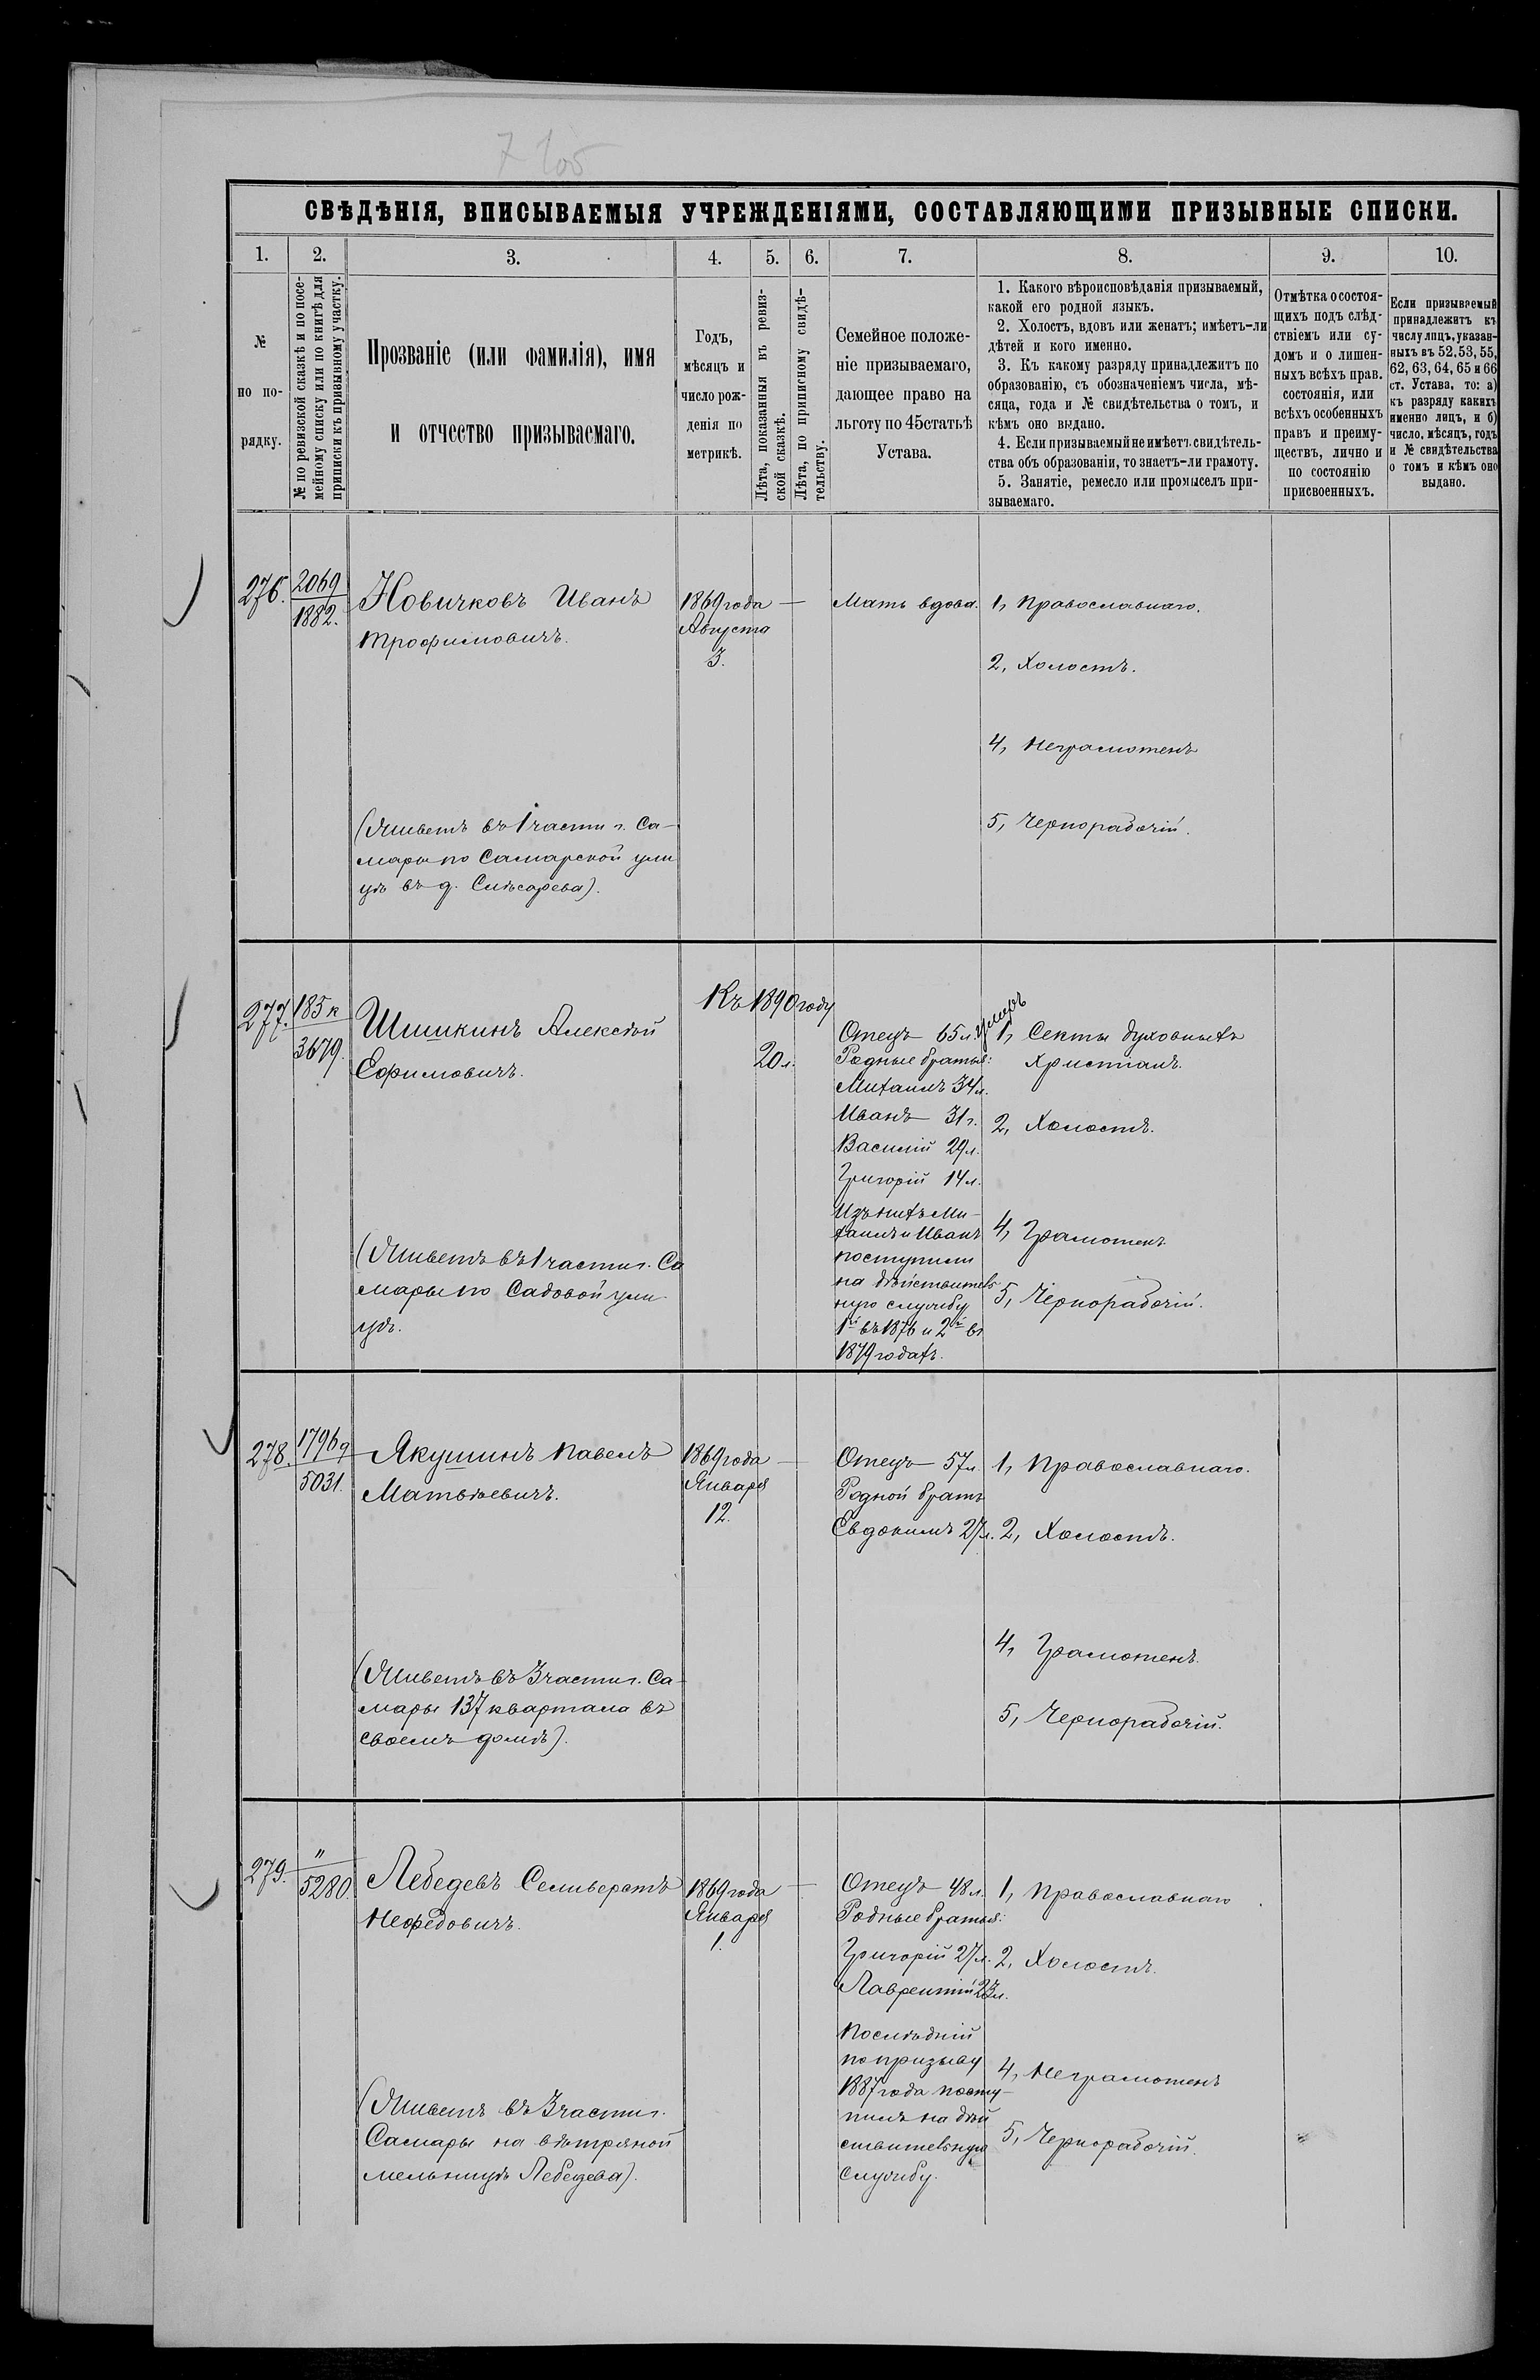 СВѢДѢНІЯ, ВПИСЫВАЕМЫЯ УЧРЕЖДЕНІЯМИ, СОСТАВЛЯЮЩИМИ ПРИЗЫВНЫЕ СПИСКИ.
1.
№
по по-
рядку.
2.
№ по ревизской сказкѣ и по посе-
мейному списку или по книгѣ для
приписки къ призывному участку.
3.
Прозваніе (или фамилія), имя
и отчество призываемаго.
4.
Годъ,
мѣсяцъ и
число рож-
денія по
метрикѣ.
5.
Лѣта, показанныя въ ревиз-
ской сказкѣ.
6.
Лѣта, по приписному свидѣ-
тельству.
7.
Семейное положе-
ніе призываемаго,
дающее право на
льготу по 45 статьѣ
Устава.
8.
1. Какого вѣроисповѣданія призываемый,
какой его родной языкъ.
2. Холостъ, вдовъ или женатъ; имѣетъ-ли
дѣтей и кого именно.
3. Къ какому разряду принадлежитъ по
образованію, съ обозначеніемъ числа, мѣ-
сяца, года и № свидѣтельства о томъ, и
кѣмъ оно выдано.
4. Если призываемый не имѣетъ свидѣтель-
ства объ образованіи, то знаетъ-ли грамоту.
5. Занятіе, ремесло или промыселъ при-
зываемаго.
9.
Отмѣтка о состоя-
щихъ подъ слѣд-
ствіемъ или су-
домъ и о лишен-
ныхъ всѣхъ прав.
состоянія, или
всѣхъ особенныхъ
правъ и преиму-
ществъ, лично и
по состоянію
присвоенныхъ.
10.
Если призываемый
принадлежитъ къ
числу лицъ, указан-
ныхъ въ 52, 53, 55,
62, 63, 64, 65 и 66
ст. Устава, то: а)
къ разряду какихъ
именно лицъ, и б)
число, мѣсяцъ, годъ
и № свидѣтельства
о томъ и кѣмъ оно
выдано.
276.
2069
1882.
Новичковъ Иванъ
Трофимовичъ.
(Живетъ въ 1 части г. Са-
мары по Самарской ули
цѣ въ д. Слѣсарева).
1869 года
Августа
3.
—
Мать вдова.
1, Православнаго.
2, Холостъ.
4, Неграмотенъ
5, Чернорабочій.
277.
185 к
3679.
Шишкинъ Алексѣй
Ефимовичъ.
(Живетъ въ 1 части г. Са
мары по Садовой ули-
цѣ.
Къ 1890 году
20 л.
Отецъ 65 л. умеръ
Родные братья:
Михаилъ 34 л.
Иванъ 31 г.
Василій 29 л.
Григорій 14 л.
Изъ нихъ Ми-
хаилъ и Иванъ
поступили
на дѣйствитель-
ную службу
1й въ 1876 и 2й въ
1879 годахъ.
1, Секты духовныхъ
Христіанъ.
2, Холостъ.
4, Грамотенъ
5, Чернорабочій.
278.
1796 9
5031.
Якушинъ Павелъ
Матвѣевичъ.
(Живетъ въ 3 части г. Са-
мары 137 квартала въ
своемъ домѣ).
1869 года
Января
12.
—
Отецъ 57 л.
Родной братъ
Евдокимъ 27 л.
1, Православнаго.
2, Холостъ.
4, Грамотенъ.
5, Чернорабочій.
279.
"
5280.
Лебедевъ Селиверстъ
Нефедовичъ.
(Живетъ въ 3 части г.
Самары на вѣтряной
мельницѣ Лебедева).
1869 года
Января
1.
—
Отецъ 48 л.
Родные братья:
Григорій 27 л.
Лаврентій 23 л.
Послѣдній
по призыву
1887 года посту-
пилъ на дѣй
ствительную
службу.
1, Православнаго
2, Холостъ.
4, Неграмотенъ
5, Чернорабочій.